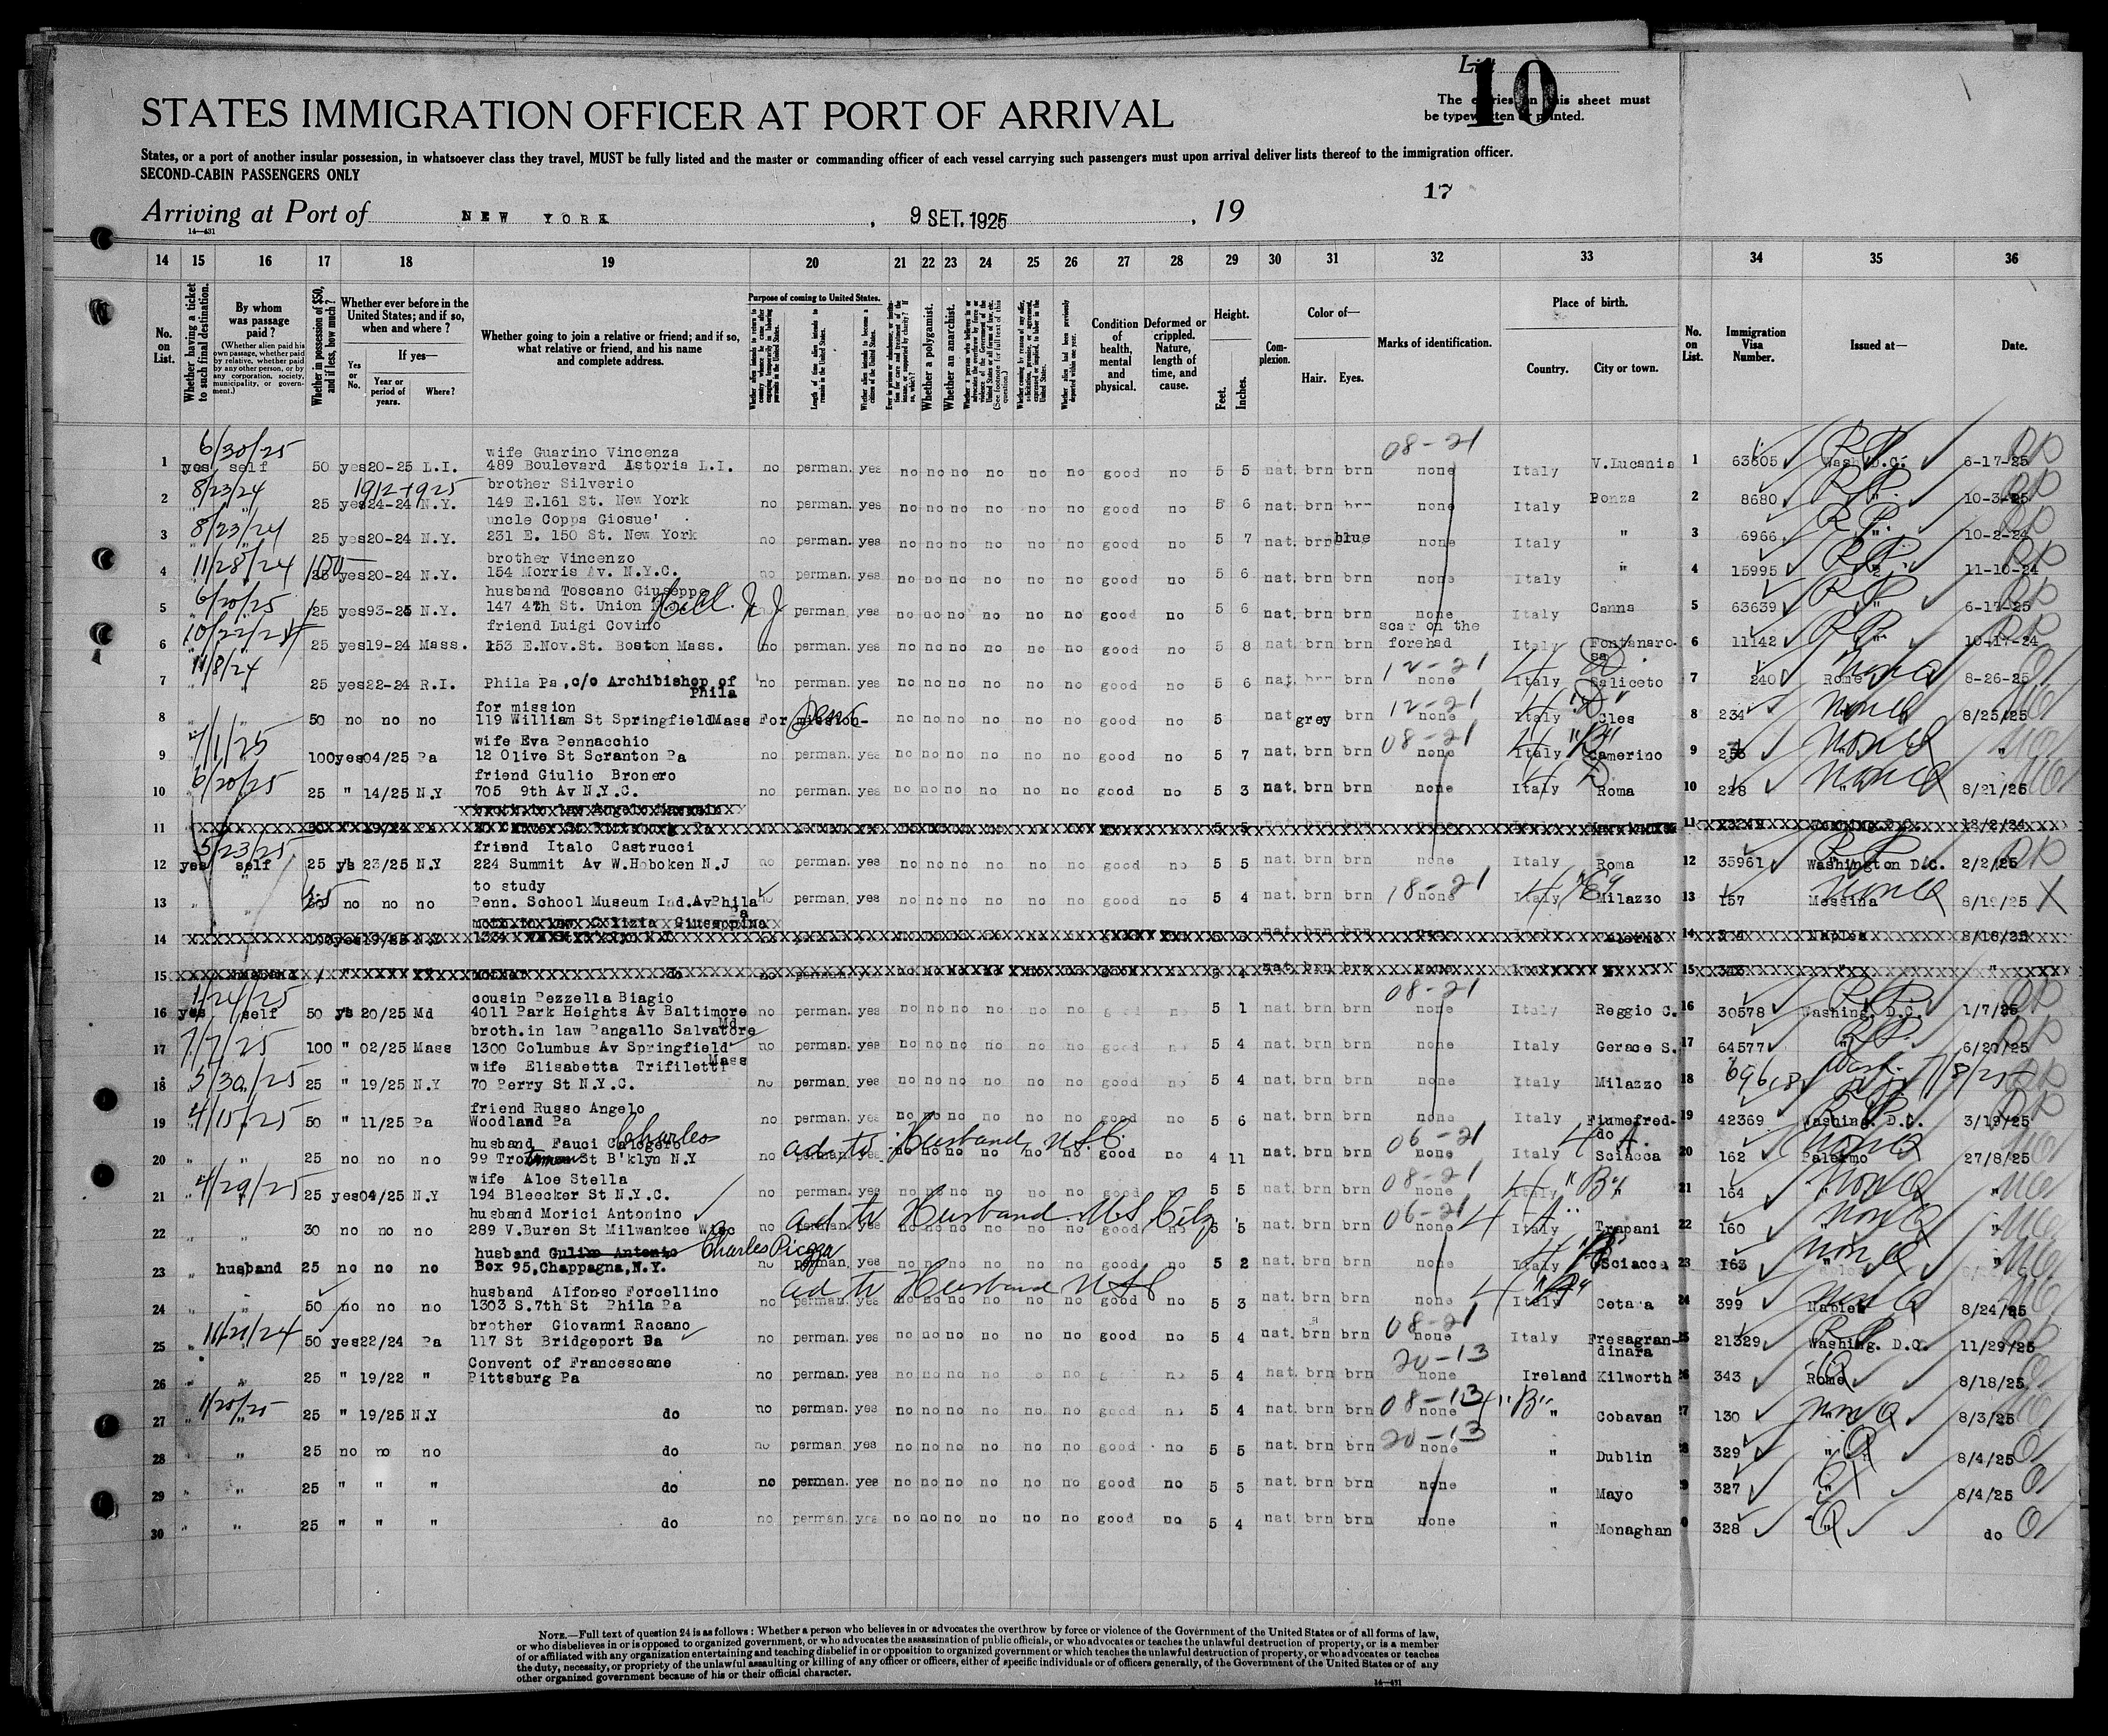 List
10
The entries on this sheet must
be typewritten or printed.
STATES IMMIGRATION OFFICER AT PORT OF ARRIVAL
States, or a port of another insular possession, in whatsoever class they travel, MUST be fully listed and the master or commanding officer of each vessel carrying such passengers must upon arrival deliver lists thereof to the immigration officer.
SECOND-CABIN PASSENGERS ONLY
17
Arriving at Port of NEW YORK , 9 SET. 1925 , 19
14—431
14 15 16 17 18 19 20 21 22 23 24 25 26 27 28 29 30 31 32 33 34 35 36
No. on List.
Whether having a ticket to such final destination.
By whom was passage paid?
(Whether alien paid his own passage, whether paid by relative, whether paid by any other person, or by any corporation, society, municipality, or government.)
Whether in possession of $50, and if less, how much?
Whether ever before in the United States; and if so, when and where?
Yes or No.
If yes—
Year or period of years.
Where?
Whether going to join a relative or friend; and if so, what relative or friend, and his name and complete address.
Purpose of coming to United States.
Length of time alien intends to remain in the United States.
Whether alien intends to become a citizen of the United States.
Whether a polygamist.
Whether an anarchist.
Condition of health, mental and physical.
Deformed or crippled. Nature, length of time, and cause.
Height.
Feet. Inches.
Complexion.
Color of—
Hair. Eyes.
Marks of identification.
Place of birth.
Country. City or town.
No. on List.
Immigration Visa Number.
Issued at—
Date.
6/30/25 wife Guarino Vincenza 08-21
1 yes self 50 yes 20-25 L.I. 489 Boulevard Astoria L.I. no perman. yes no no no no no no good no 5 5 nat. brn brn none Italy V.Lucania 1 63605 Wash.D.C. 6-17-25
8/23/24 1912-1925 brother Silverio
2 " " 25 yes 24-24 N.Y. 149 E.161 St. New York no perman. yes no no no no no no good no 5 6 nat. brn brn none Italy Ponza 2 8680 " 10-3-25
8/23/24 uncle Coppa Giosue'
3 " " 25 yes 20-24 N.Y. 231 E. 150 St. New York no perman. yes no no no no no no good no 5 7 nat. brn blue none Italy " 3 6966 " 10-2-24
11/28/24 100 brother Vincenzo
4 " " 25 yes 20-24 N.Y. 154 Morris Av. N.Y.C. no perman. yes no no no no no no good no 5 6 nat. brn brn none Italy " 4 15995 " 11-10-24
6/20/25 husband Toscano Giuseppe
5 " " 25 yes 93-25 N.Y. 147 4th St. Union Hill N J no perman. yes no no no no no no good no 5 6 nat. brn brn none Italy Canna 5 63639 " 6-17-25
10/22/24 friend Luigi Covino scar on the
6 " " 25 yes 19-24 Mass. 153 E.Nov.St. Boston Mass. no perman. yes no no no no no no good no 5 8 nat. brn brn forehad Italy Fontanaro- sa 6 11142 " 10-17-24
11/8/24 12-21 4 D
7 " " 25 yes 22-24 R.I. Phila Pa ,c/o Archibishop of Phila no perman. yes no no no no no no good no 5 6 nat. brn brn none Italy Saliceto 7 240 Rome 8-26-25
for mission 12-21 4 "D"
8 50 no no no 119 William St Springfield Mass For mission- no no no no no no good no 5 nat grey brn none Italy Cles 8 234 " 8/25/25
7/1/25 wife Eva Pennacchio 08-21 4 "B"
9 100 yes 04/25 Pa 12 Olive St Scranton Pa no perman. yes no no no no no no good no 5 7 nat. brn brn none Italy Camerino 9 253 " "
6/20/25 friend Giulio Bronero 4 D
10 25 " 14/25 N.Y 705 9th Av N.Y.C. no perman. yes no no no no no no good no 5 3 nat. brn brn none Italy Roma 10 228 " 8/21/25
11
5/23/25 friend Italo Castrucci
12 yes self 25 ys 23/25 N.Y 224 Summit Av W.Hoboken N.J no perman. yes no no no no no no good no 5 5 nat. brn brn none Italy Roma 12 35961 Washington D.C. 2/2/25
to study 18-21 4 "E"
13 " " no no no Penn. School Museum Ind.Av Phila Pa no perman. yes no no no no no no good no 5 4 nat. brn brn none Italy Milazzo 13 157 Messina 8/19/25
14
15
1/24/25 cousin Pezzella Biagio 08-21
16 yes self 50 ys 20/25 Md 4011 Park Heights Av Baltimore Md. no perman. yes no no no no no no good no 5 1 nat. brn brn none Italy Reggio C. 16 30578 Washing. D.C. 1/7/25
7/7/25 broth.in law Pangallo Salvatore
17 100 " 02/25 Mass 1300 Columbus Av Springfield Mass no perman. yes no no no no no no good no 5 4 nat. brn brn none Italy Gerace S. 17 64577 " 6/20/25
5/30/25 wife Elisabetta Trifiletti
18 25 " 19/25 N.Y 70 Perry St N.Y.C. no perman. yes no no no no no no good no 5 4 nat. brn brn none Italy Milazzo 18 69618 Wash. 7/8/25
4/15/25 friend Russo Angelo
19 50 " 11/25 Pa Woodland Pa no perman. yes no no no no no no good no 5 6 nat. brn brn none Italy Fiumefred- do 19 42369 Washing. D.C. 3/19/25
husband Fauci Calogero Charles ad to Husband, U.S.C. 06-21 4 A.
20 " " 25 no no no 99 St B'klyn N.Y no perman. yes no no no no no no good no 4 11 nat. brn brn none Italy Sciacca 20 162 Palermo 27/8/25
4/29/25 wife Aloe Stella 08-21 4 "B"
21 25 yes 04/25 N.Y 194 Bleecker St N.Y.C. no perman. yes no no no no no no good no 5 5 nat. brn brn none Italy " 21 164 " "
husband Morici Antonino ad to Husband U.S Citz 06-21 4 "A"
22 " " 30 no no no 289 V.Buren St Milwankee Wisc no perman. yes no no no no no no good no 5 5 nat. brn brn none Italy Trapani 22 160 " "
husband Gulino Antonio Charles Piazza
23 " husband 25 no no no Box 95,Chappagna,N.Y. no perman. yes no no no no no no good no 5 2 nat. brn brn none Italy Sciacca 23 163 " "
husband Alfonso Forcellino ad to Husband USC 4 "A"
24 " " 50 no no no 1303 S.7th St Phila Pa no perman. yes no no no no no no good no 5 3 nat. brn brn none Italy Cetara 24 399 Naples 8/24/25
11/21/24 brother Giovanni Racano 08-21
25 " 50 yes 22/24 Pa 117 St Bridgeport Pa no perman. yes no no no no no no good no 5 4 nat. brn brn none Italy Fresagran- dinara 25 21329 Washing. D.C. 11/29/25
Convent of Francescane 20-13
26 " " 25 " 19/22 " Pittsburg Pa no perman. yes no no no no no no no 5 4 nat. brn brn none Ireland Kilworth 26 343 Rome 8/18/25
1/20/25 08-13 4 "B"
27 " 25 " 19/25 N.Y do no perman. yes no no no no no no good no 5 4 nat. brn brn none " Cobavan 27 130 " 8/3/25
20-13
28 " " 25 no no no do no perman yes no no no no no no good no 5 5 nat. brn brn none " Dublin 28 329 " 8/4/25
29 " " 25 " " " do no perman. yes no no no no no no good no 5 5 nat. brn brn none " Mayo 29 327 " 8/4/25
30 " " 25 " " " do no perman. yes no no no no no no good no 5 4 nat. brn brn none " Monaghan 30 328 " do
NOTE.—Full text of question 24 is as follows: Whether a person who believes in or advocates the overthrow by force or violence of the Government of the United States or of all forms of law,
or who disbelieves in or is opposed to organized government, or who advocates the assassination of public officials, or who advocates or teaches the unlawful destruction of property, or is a member
of or affiliated with any organization entertaining and teaching disbelief in or opposition to organized government or which teaches the unlawful destruction of property, or who advocates or teaches
the duty, necessity, or propriety of the unlawful assaulting or killing of any officer or officers, either of specific individuals or of officers generally, of the Government of the United States or of any
other organized government because of his or their official character.
14—431